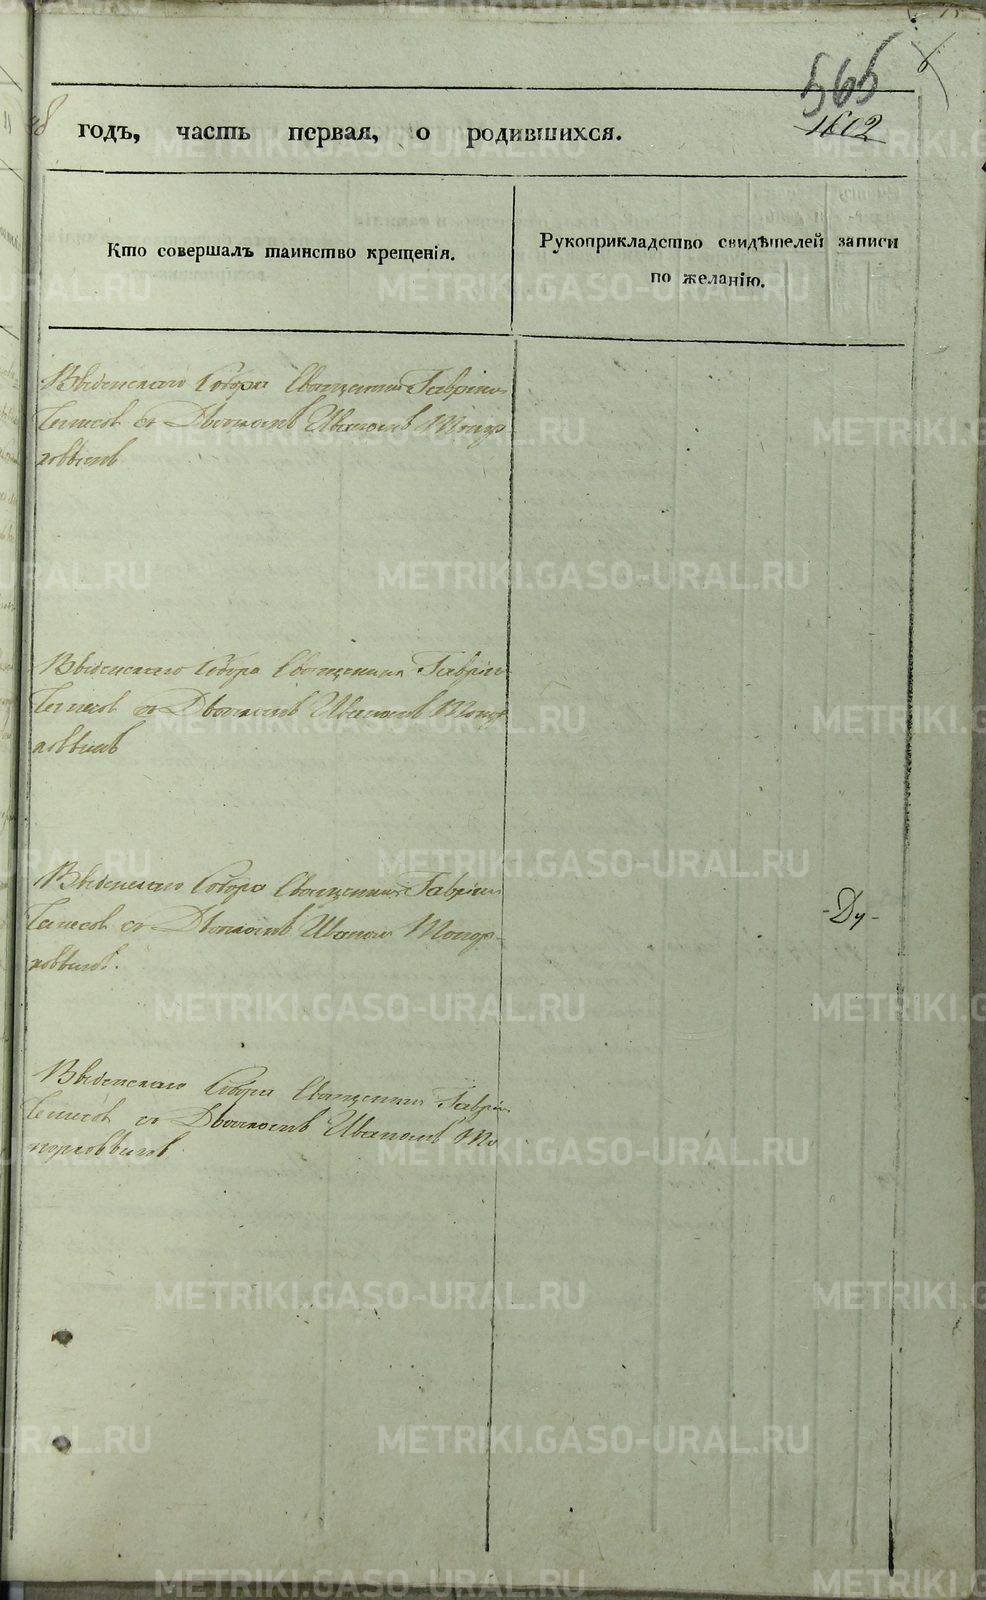 565
1602
8 годъ, часть первая, о родившихся.
Кто совершалъ таинство крещенія.
Рукоприкладство свидѣтелей записи
по желанію.
Введенскаго Собора Священникъ Гавріилъ
съ Дьякономъ Иваномъ Топор
ковымъ
Введенскаго Собора Священникъ Гавріилъ
съ Дьякономъ Иваномъ Топор
ковымъ
Введенскаго Собора Священникъ Гавріилъ
съ Дьякономъ Иваномъ Топор-
ковымъ.
-Ду-
Введенскаго Собора Священникъ Гавріилъ
съ Дьякономъ Иваномъ То
порковымъ
METRIKI.GASO-URAL.RU